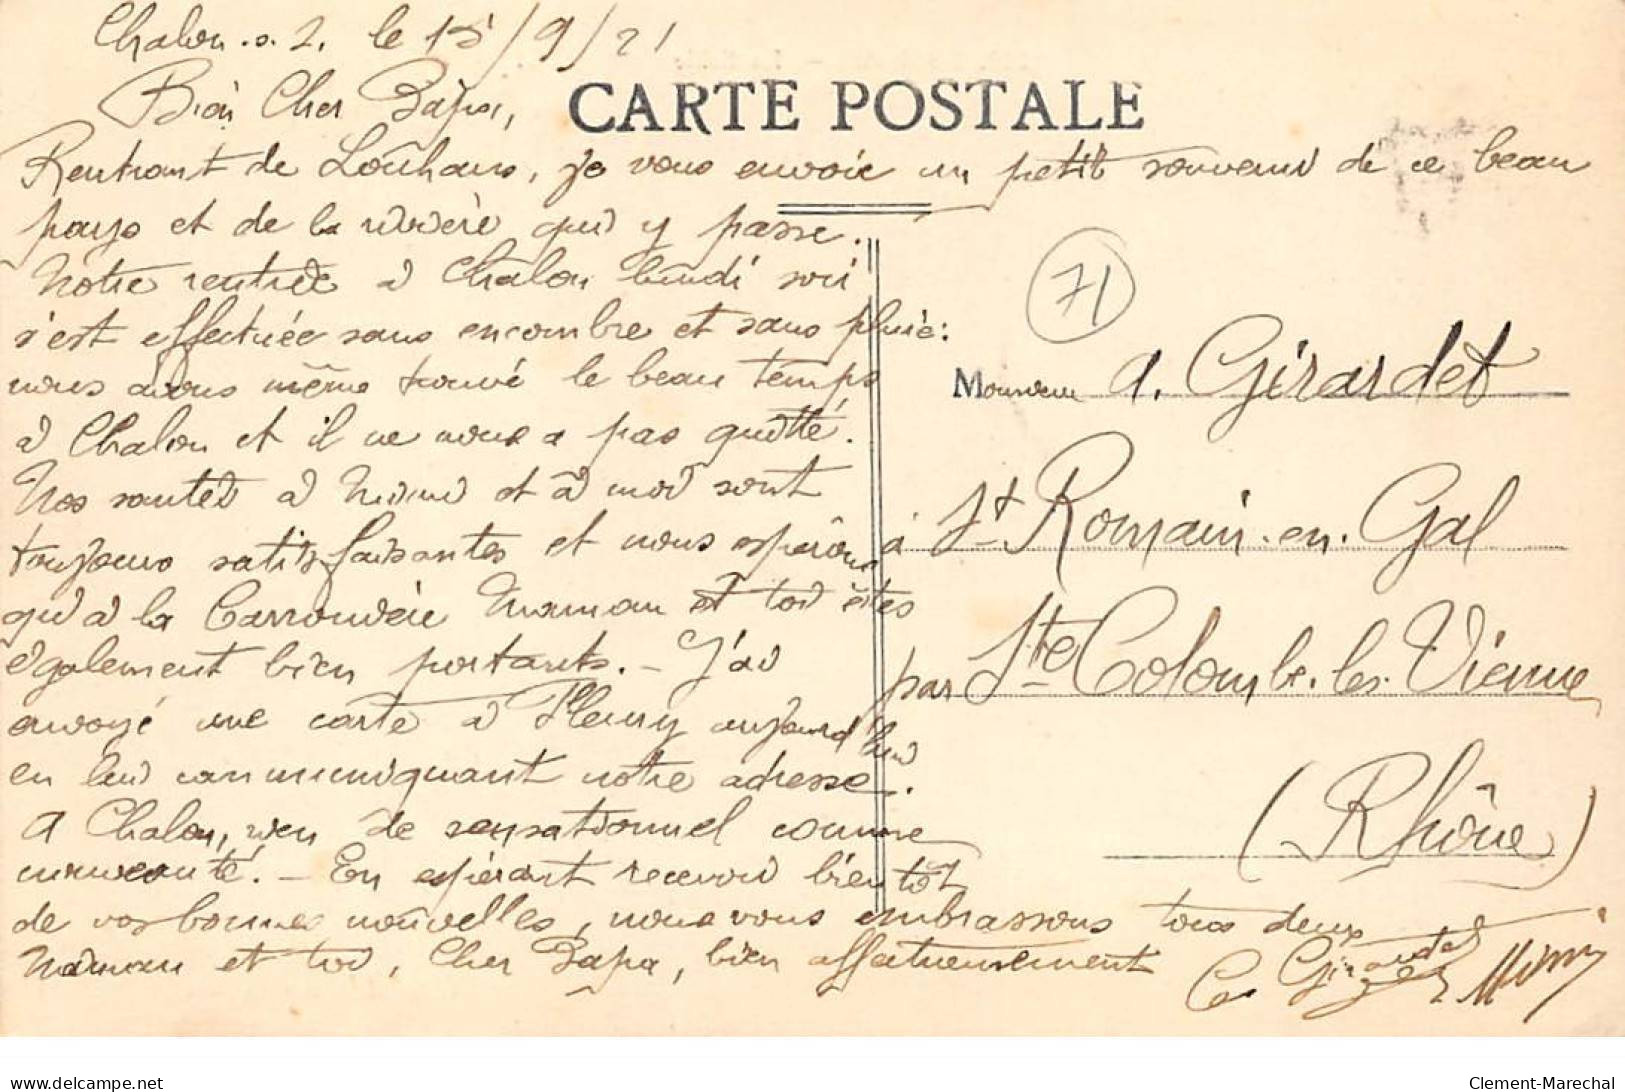 Chalon.s.S. le 15/9/21
Bien Cher Papa,
CARTE POSTALE
Rentrant de Louhans, je vous envoie un petit souvenir de ce beau
pays et de la rivière qui y passe.
Notre rentrée à Chalon lundi soir
s'est effectuée sans encombre et sans pluie:
nous avons même trouvé le beau temps
à Chalon et il ne nous a pas quitté.
Nos santés à Mimi et à moi sont
toujours satisfaisantes et nous espérons
qu'à la Maman et toi êtes
également bien portants. - J'ai
envoyé une carte à Fleury aujourd'hui
en lui communiquant notre adresse.
A Chalon, rien de sensationnel comme
nouveauté. - En espérant recevoir bientôt
de vos bonnes nouvelles, nous vous embrassons tous deux
Maman et toi, Cher Papa, bien affectueusement
Girardet Mimi
71
Monsieur A. Girardet
à St Romain-en-Gal
par Ste Colombe-les-Vienne
(Rhône)
delcampe.net
Clement-Marechal